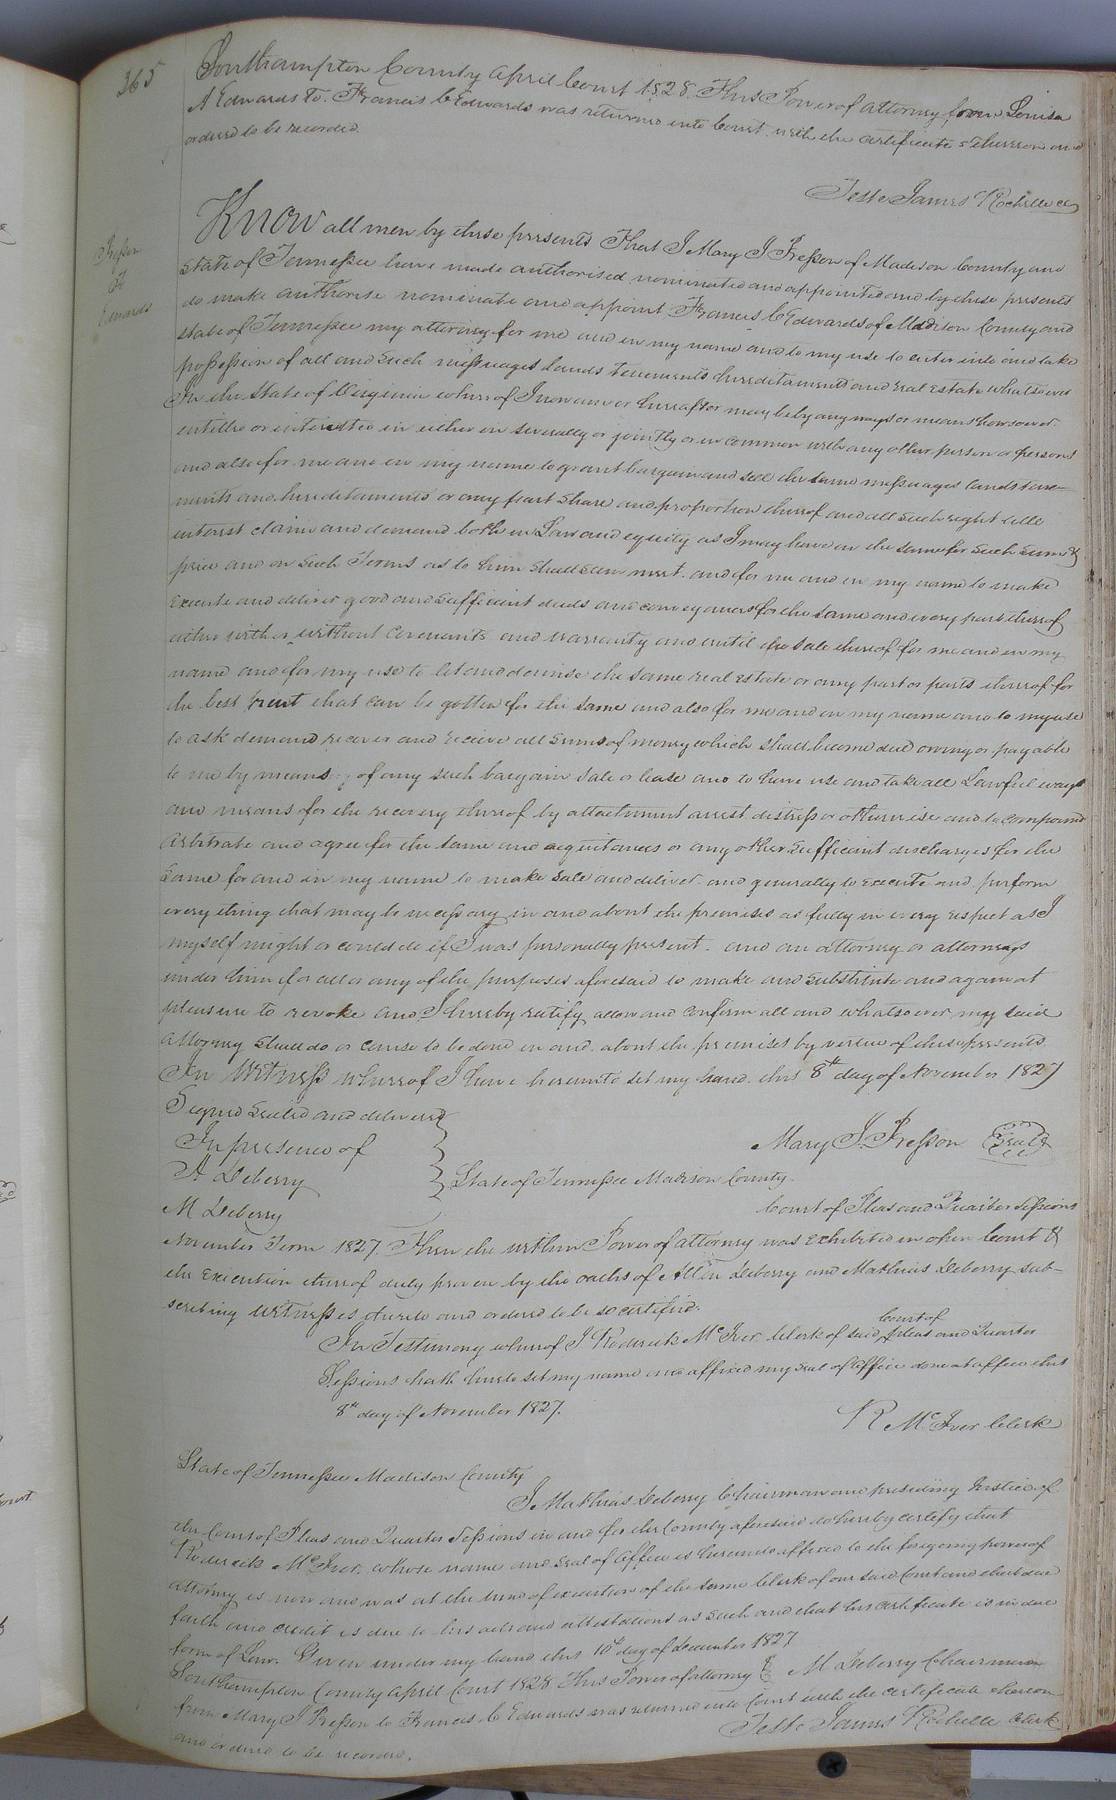 365
Southampton County April Court 1828. This Power of attorney from Louisa
A Edwards to Francis C Edwards was returned into Court with the certificates thereon and
ordered to be recorded.
Teste James Rochelle cc
Presson
To
Edwards
Know all men by these presents That I Mary J Presson of Madison County and
State of Tennessee have made authorised nominated and appointed and by these presents
do make authorise nominate and appoint Francis C Edwards of Madison County and
state of Tennessee my attorney for me and in my name and to my use to enter into and take
possession of all and such messuages lands Tenements hereditaments and real Estate whatsoever
In the State of Virginia whereof I now am or hereafter may be by any ways or means howsoever
entitled or interested in either in severally or jointly or in common with any other person or persons
and also for me and in my name to grant bargain and sell the same messuages lands tene-
ments and hereditaments or any part share and proportion thereof and all such right title
interest claim and demand both in Law and equity as I may have in the same for such sum &
price and on such Terms as to him shall seem meet. and for me and in my name to make
Execute and deliver good and sufficient deeds and conveyances for the same and every part thereof
either with or without covenants and warranty and until the sale thereof for me and in my
name and for my use to let and demise the same real Estate or any part or parts thereof for
the best rent that can be gotten for the same and also for me and in my name and to my use
to ask demand recover and receive all sums of money which shall become due owing or payable
to me by means of any such bargain sale or lease and to have use and take all Lawful ways
and means for the recovery thereof by attachment arrest distress or otherwise and to compound
arbitrate and agree for the same and acquitances or any other sufficient discharges for the
same for and in my name to make sale and deliver. and generally to Execute and perform
every thing that may be necessary in and about the premises as fully in every respect as I
myself might or could do if I was personally present. and an attorney or attorneys
under him for all or any of the purposes aforesaid to make and substitute and again at
pleasure to revoke and I hereby ratify allow and confirm all and whatsoever my said
attorney shall do or cause to be done in and about the premises by virtue of these presents.
In Witness whereof I have hereunto set my hand this 8th day of November 1827
Signed Sealed and delivered
In presence of
Mary J. Presson Seal
A Deberry
State of Tennessee Madison County
M Deberry
Court of Pleas and Quarter Sessions
November Term 1827. Then the within Power of attorney was exhibited in open Court &
the Execution thereof duly proven by the oaths of Allen Deberry and Mathias Deberry sub-
scribing Witnesses thereto and ordered to be so certified.
In Testimony whereof I Roderick McIver Clerk of said Court of pleas and Quarter
Sessions hath hereto set my name and affixed my seal of office done at office this
8th day of November 1827.
R McIver Clerk
State of Tennessee Madison County
I Mathias Deberry Chairman and presiding Justice of
the Court of Pleas and Quarter Sessions in and for the County aforesaid do hereby certify that
Roderick McIver whose name and seal of office is hereunto affixed to the foregoing power of
attorney is now and was at the time of execution of the same Clerk of our said Court and that due
faith and credit is due to his acts and attestations as such and that his certificate is in due
form of Law. Given under my hand this 10th day of December 1827
M Deberry Chairman
Southampton County April Court 1828. This Power of attorney
from Mary J Presson to Francis C Edwards was returned into Court with the certificate thereon
and ordered to be recorded.
Teste James Rochelle Clerk